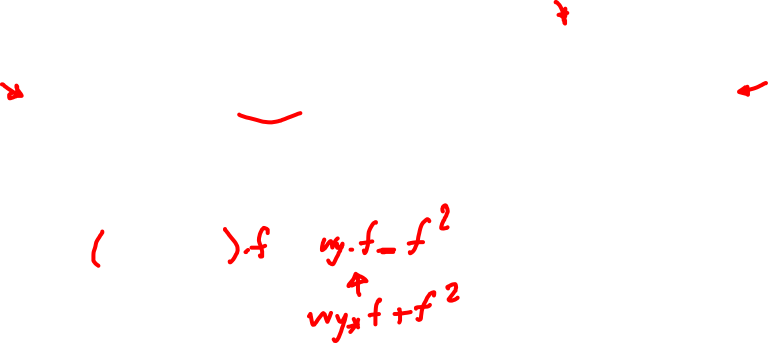 ( ).f my.f - f²
my * f + f²